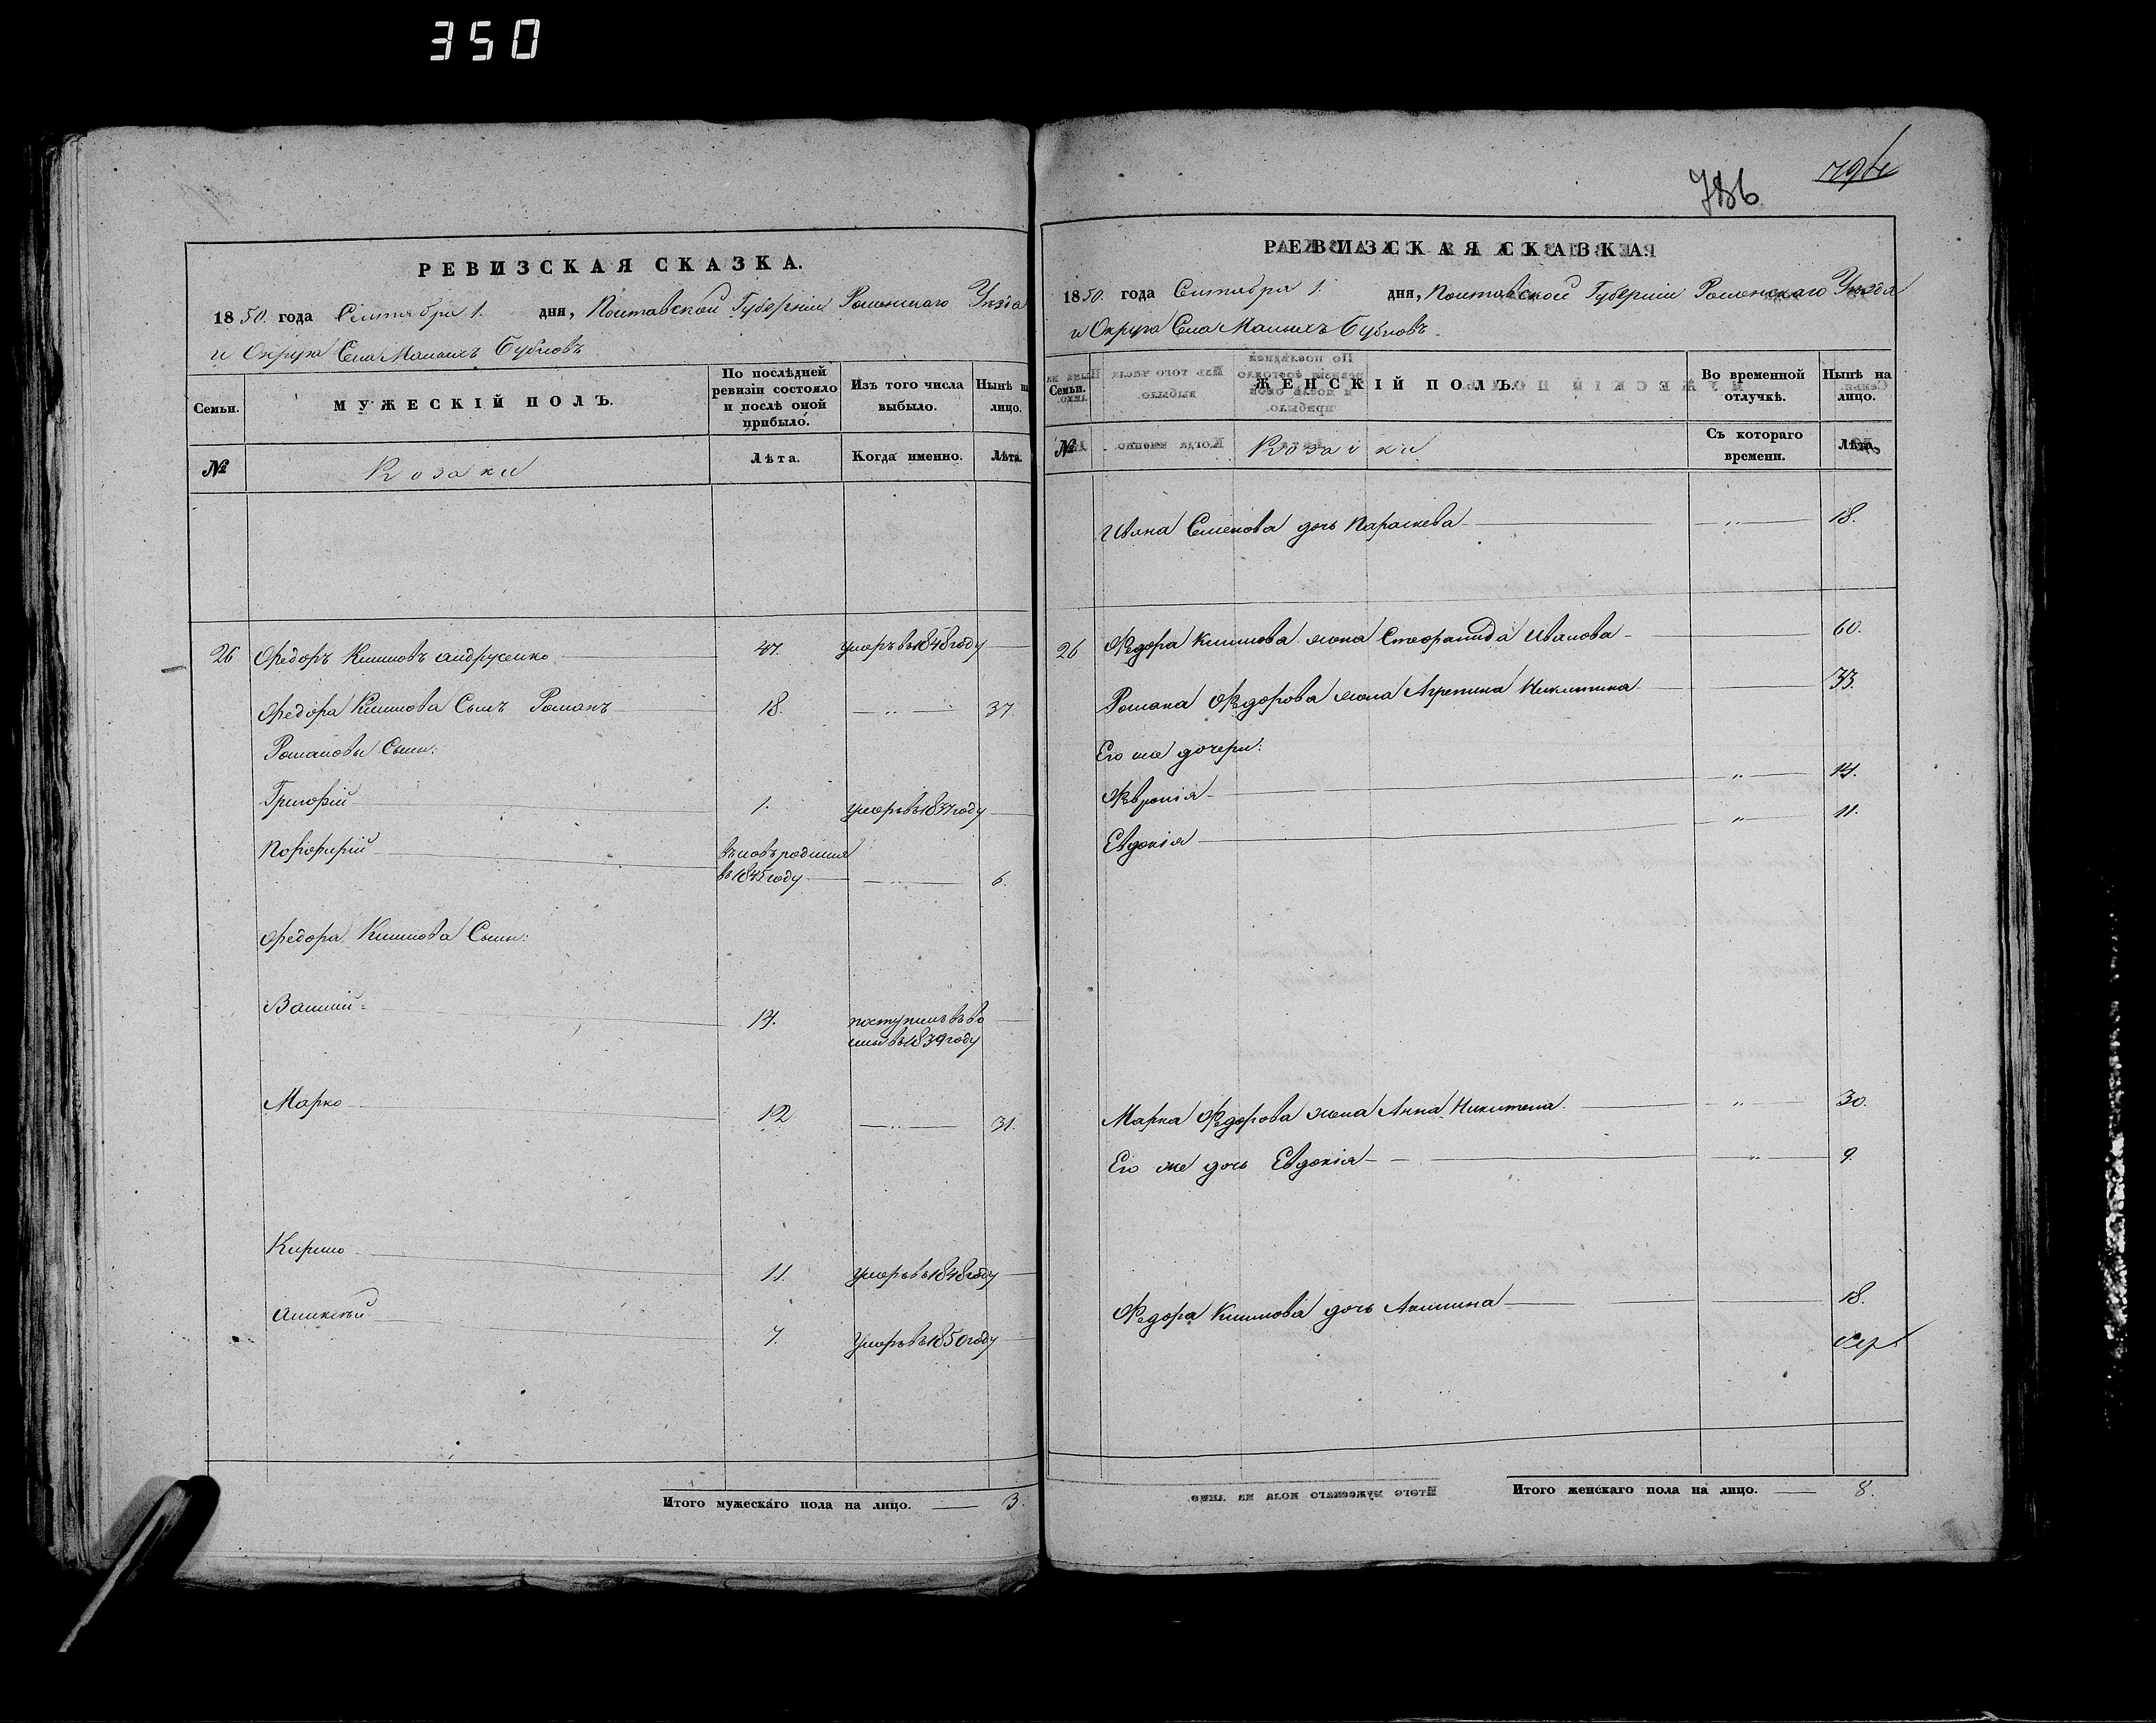 350
РЕВИЗСКАЯ СКАЗКА.
1850. года Сентября 1. дня, Полтавской Губерніи Роменскаго Уѣзда
и Округа Села Малыхъ Бубновъ
Семьи.
МУЖЕСКІЙ ПОЛЪ.
По послѣдней ревизіи состояло и послѣ оной прибыло.
Изъ того числа выбыло.
Нынѣ на лицо.
№
Козаки
Лѣта.
Когда именно.
Лѣта.
26 Федоръ Климовъ Андрусенко 47. умеръ въ 1848 году
Федора Климова Сынъ Романъ 18. — „ — 37.
Романовы Сыны:
Григорій 1. умеръ въ 1837 году
Порфирій вновь родился
въ 1845 году — „ — 6.
Федора Климова Сыны:
Василій 14. поступилъ въ во
ины въ 1839 году
Марко 12 — „ — 31.
Кирило 11. умеръ въ 1848 году
Аликсѣй 7. Умеръ въ 1850 году
Итого мужескаго пола на лицо. — 3.
786
РЕВИЗСКАЯ СКАЗКА.
1850. года Сентября 1. дня, Полтавской Губерніи Роменскаго Уѣзда
и Округа Села Малыхъ Бубновъ
Семьи.
ЖЕНСКІЙ ПОЛЪ.
Во временной отлучкѣ.
Нынѣ на лицо.
№
Козачки
Съ котораго времени.
Лѣта.
Ивана Семенова дочь Параскева — „ — 18.
26 Федора Климова жена Стефанида Иванова 60.
Романа Федорова жена Агрепина Никитина 33.
Его же дочери:
Февронія — „ — 14.
Евдокія — „ — 11.
Марка Федорова жена Анна Никитена — „ — 30.
Его же дочь Евдокія — „ — 9.
Федора Климова дочь Акилина 18.
Итого женскаго пола на лицо. — 8.